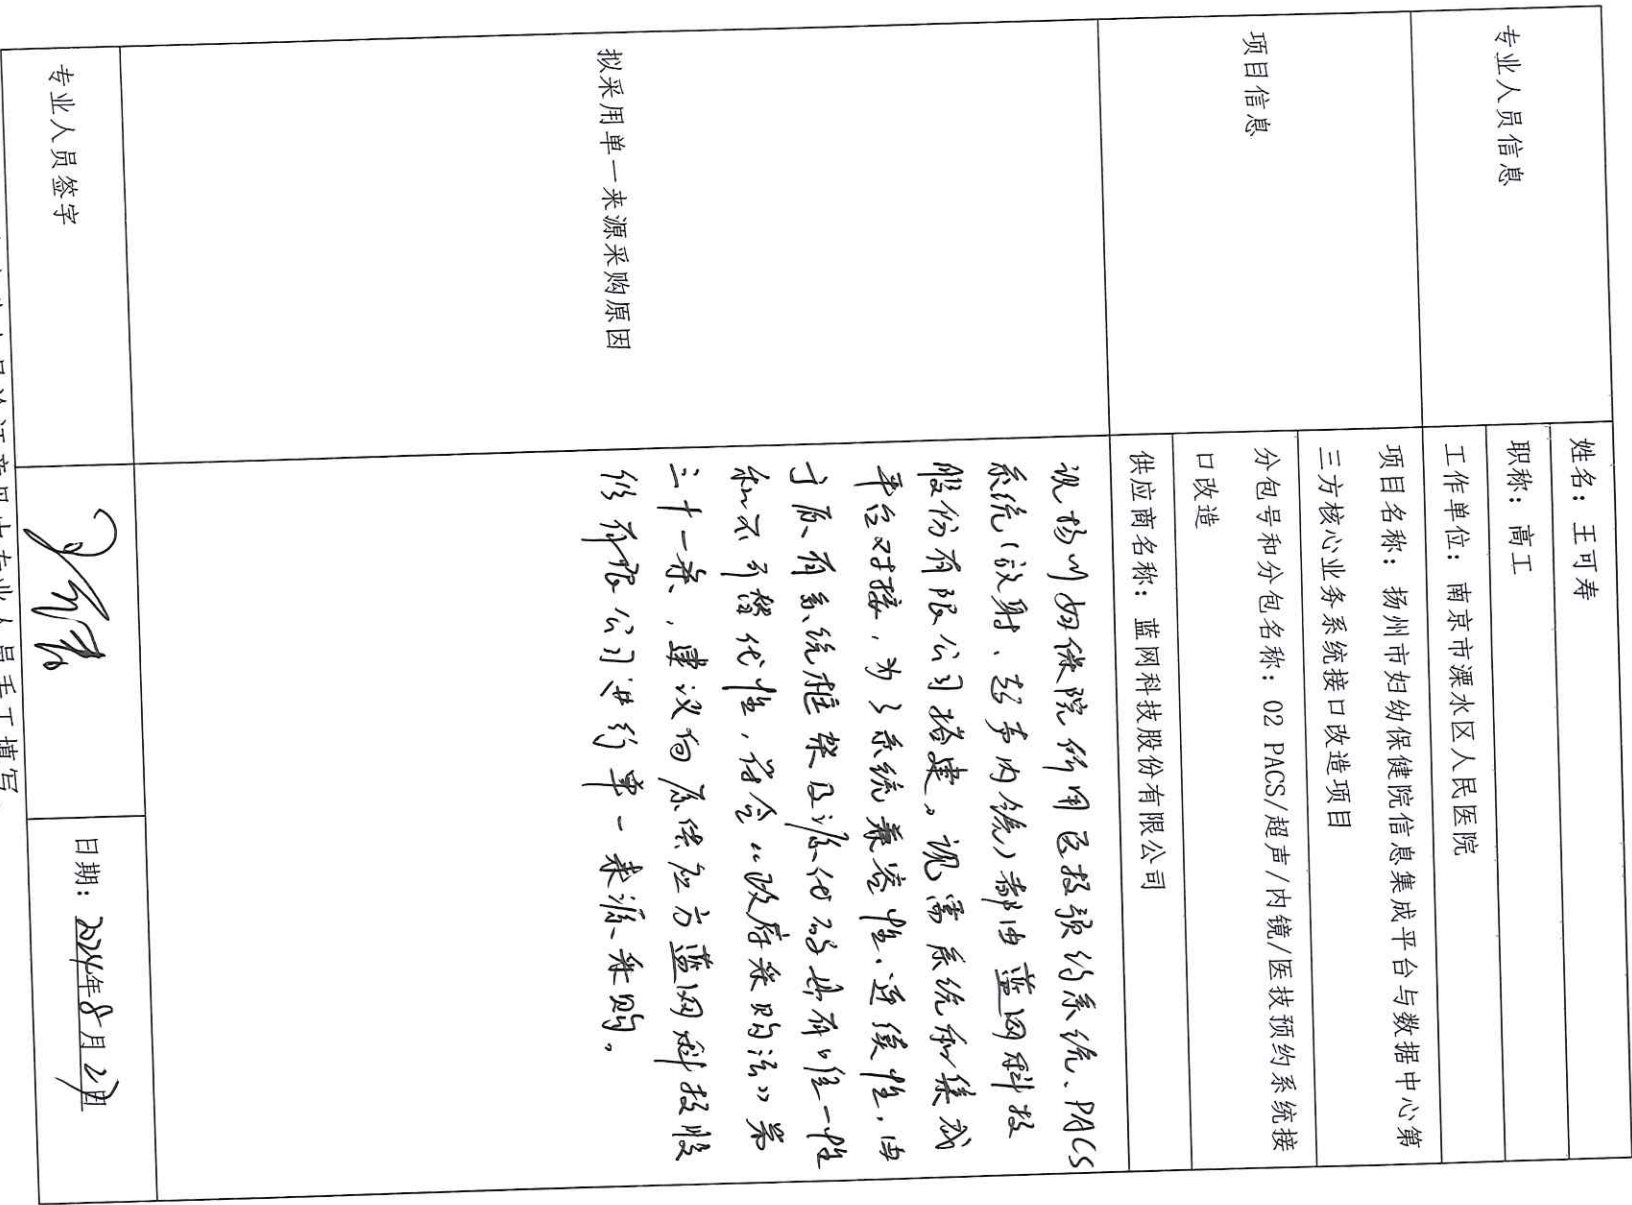 专业人员信息
姓名：王可寿
职称：高工
工作单位：南京市溧水区人民医院
项目信息
项目名称：扬州市妇幼保健院信息集成平台与数据中心第
三方核心业务系统接口改造项目
分包号和分包名称：02 PACS/超声/内镜/医技预约系统接
口改造
供应商名称：蓝网科技股份有限公司
拟采用单一来源采购原因
现扬州妇保院所用医技预约系统、PACS
系统（放射、超声内镜）都由蓝网科技
股份有限公司搭建。现需系统和集成
平台对接，为了系统兼容性、连续性，由
于原有系统框架及源代码具有唯一性
和不可替代性，符合“政府采购法”第
三十一条，建议向原供应方蓝网科技股
份有限公司进行单一来源采购。
专业人员签字
日期：2024年8月2日
专业人员手工填写。